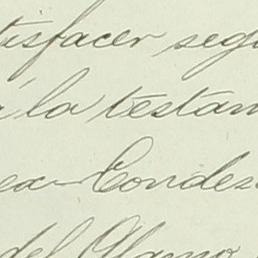 tisfacer segu
á la testam
ex-Condesa
del Alamo